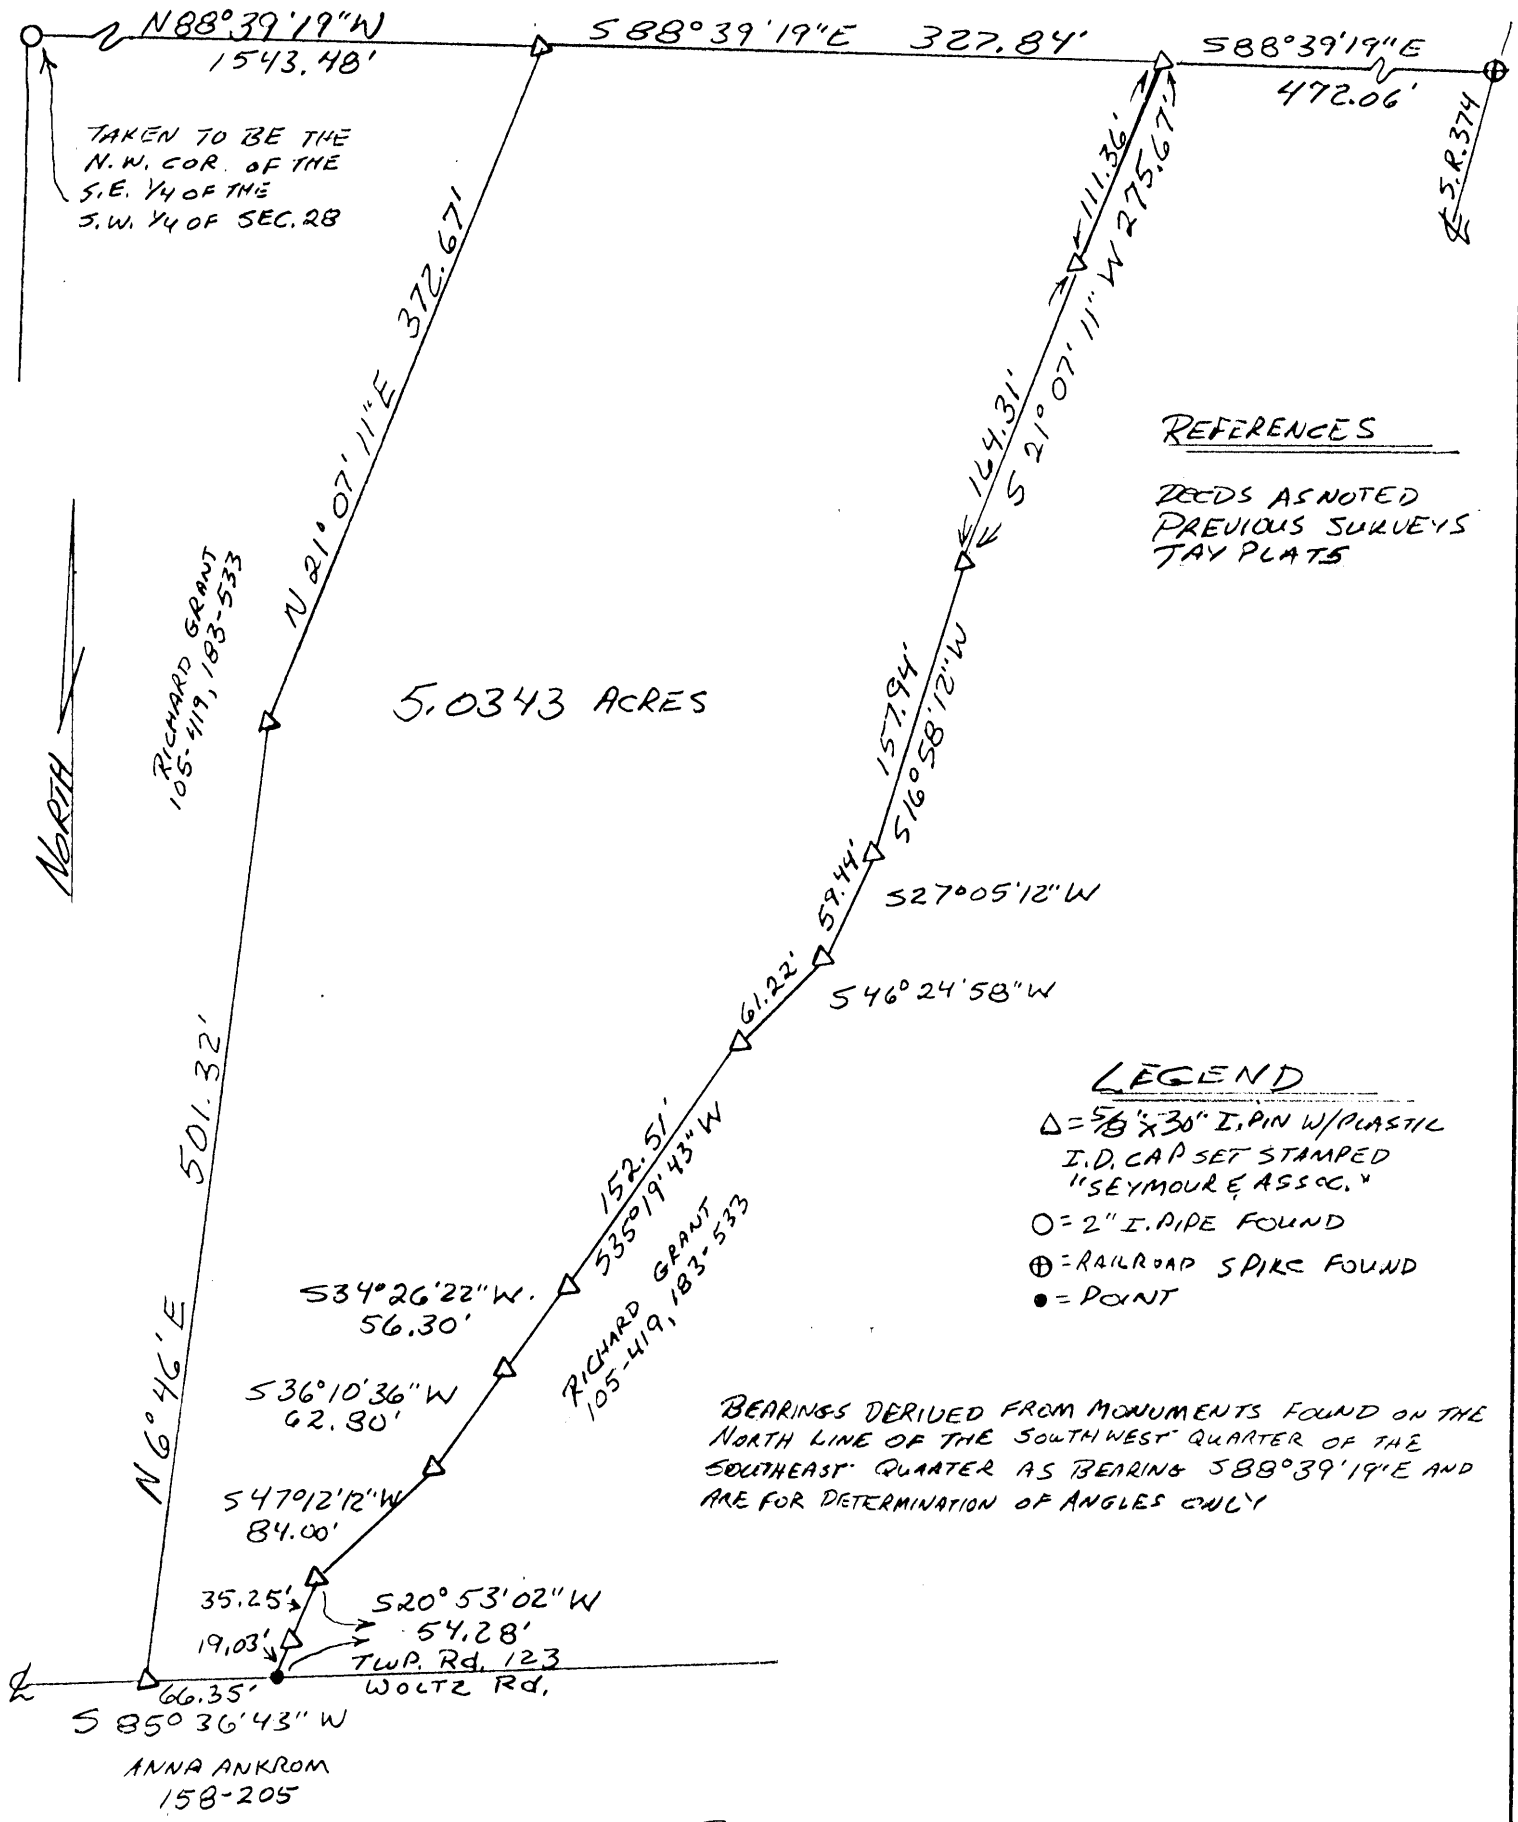 N88°39'19"W
1543.48'
S88°39'19"E 327.84'
S88°39'19"E
472.06'
TAKEN TO BE THE
N.W. COR. OF THE
S.E. 1/4 OF THE
S.W. 1/4 OF SEC. 28
℄ S.R. 374
111.36'
S 21° 07' 11" W 275.67'
164.31'
N 21° 07' 11" E 372.67'
REFERENCES
DEEDS AS NOTED
PREVIOUS SURVEYS
TAX PLATS
RICHARD GRANT
105-419, 183-533
NORTH
5.0343 ACRES
157.94'
S16°58'12"W
59.44'
S27°05'12"W
61.22'
S46°24'58"W
N6°46'E 501.32'
152.51'
S35°19'43"W
RICHARD GRANT
105-419, 183-533
LEGEND
△ = 5/8" x 30" I. PIN W/PLASTIC
I.D. CAP SET STAMPED
"SEYMOUR & ASSOC."
○ = 2" I. PIPE FOUND
⊕ = RAILROAD SPIKE FOUND
● = POINT
S34°26'22"W.
56.30'
S36°10'36"W
62.80'
S47°12'12"W
84.00'
BEARINGS DERIVED FROM MONUMENTS FOUND ON THE
NORTH LINE OF THE SOUTHWEST QUARTER OF THE
SOUTHEAST QUARTER AS BEARING S88°39'19"E AND
ARE FOR DETERMINATION OF ANGLES ONLY
35.25'
S20°53'02"W
54.28'
19.03'
TWP. Rd. 123
WOLTZ Rd.
℄
66.35'
S 85° 36' 43" W
ANNA ANKROM
158-205